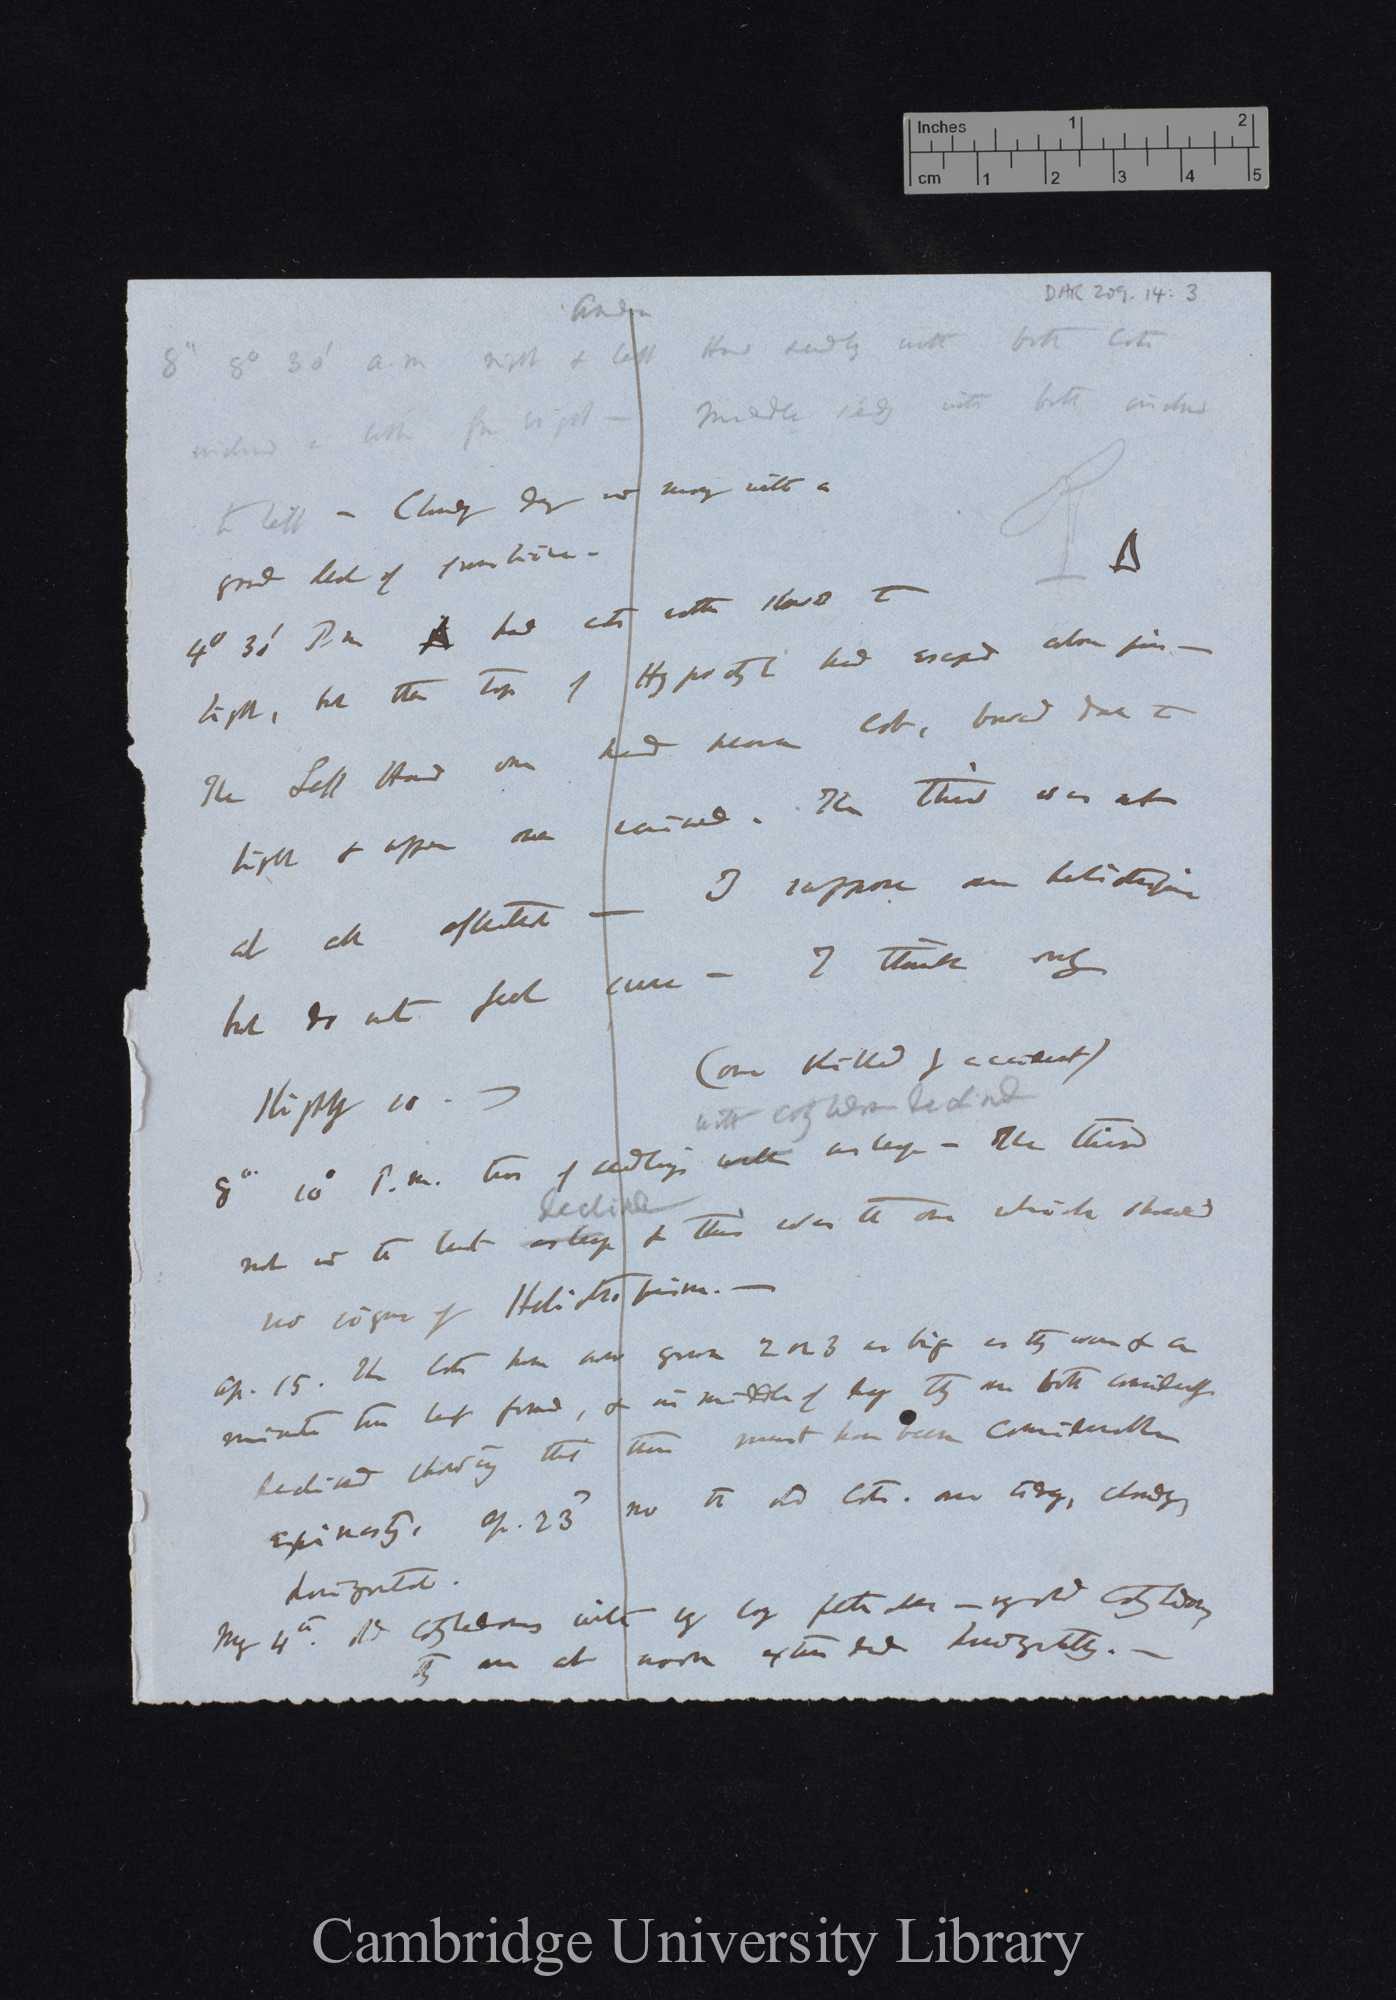 Inches 1 2
cm 1 2 3 4 5
DAR 209.14: 3
8th 8° 30' a.m. right & left Hand seedling with both Cots
inclined a little from light — Middle seedling with both inclined
to left — Cloudy day in morning with a
good deal of sunshine —
Δ
4° 30' P.m Δ had cots rather slant to
light, but the tops of Hypocotyl had escaped above pin —
The Left Hand one had nearer Cot, bowed down to
light & upper one raised. The Third was not
at all affected — I suppose are heliotropic
but do not feel sure — I think only
slightly so. —
(one killed by accident)
with cotyledon declined
8th 10° P.m. two of seedlings with asleep — The third
declined
not in the least asleep & this was the one which showed
no signs of Heliotropism. —
Ap. 15. The Cots have now grown 2 or 3 as big as they were & a
minute true leaf formed, & in middle of day they are both considerably
declined showing that there must have been considerable
epinasty. Ap. 23 now the old Cots. are today, cloudy,
horizontal.
May 4th. old cotyledons with long petioles — very old Cotyledons,
they are at noon extended horizontally. —
Cambridge University Library